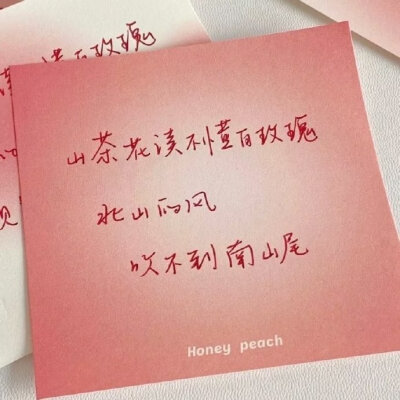 山茶花读不懂白玫瑰
北山的风
吹不到南山尾
Honey peach
懂白玫瑰